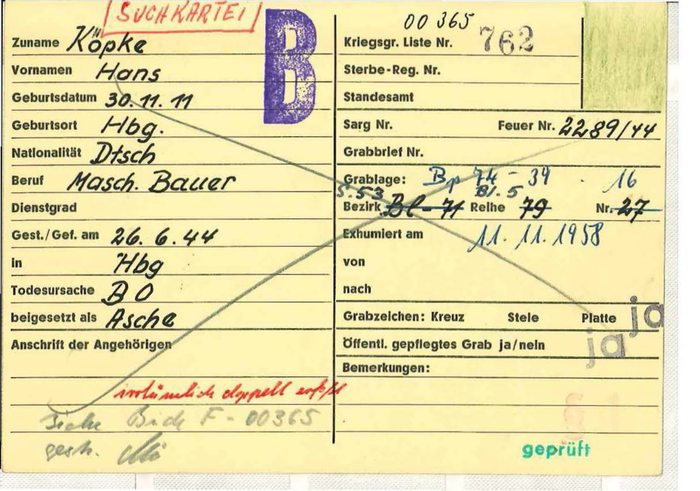 SUCHKARTEI
B
Zuname Köpke
Vornamen Hans
Geburtsdatum 30.11.11
Geburtsort Hbg.
Nationalität Dtsch
Beruf Masch. Bauer
Dienstgrad
Gest./Gef. am 26. 6. 44
in Hbg
Todesursache BO
beigesetzt als Asche
Anschrift der Angehörigen
irrtümlich doppelt erfaßt
siehe Buch F - 00365
gestr.
00365
Kriegsgr. Liste Nr. 762
Sterbe-Reg. Nr.
Standesamt
Sarg Nr. Feuer Nr. 2289/44
Grabbrief Nr.
Grablage: Bp 74 - 39 · 16
S. 53 Bl. 5
Bezirk Bl - 71 Reihe 79 Nr. 27
Exhumiert am 11. 11. 1958
von
nach
Grabzeichen: Kreuz Stele Platte ja
Öffentl. gepflegtes Grab ja/nein ja
Bemerkungen:
geprüft